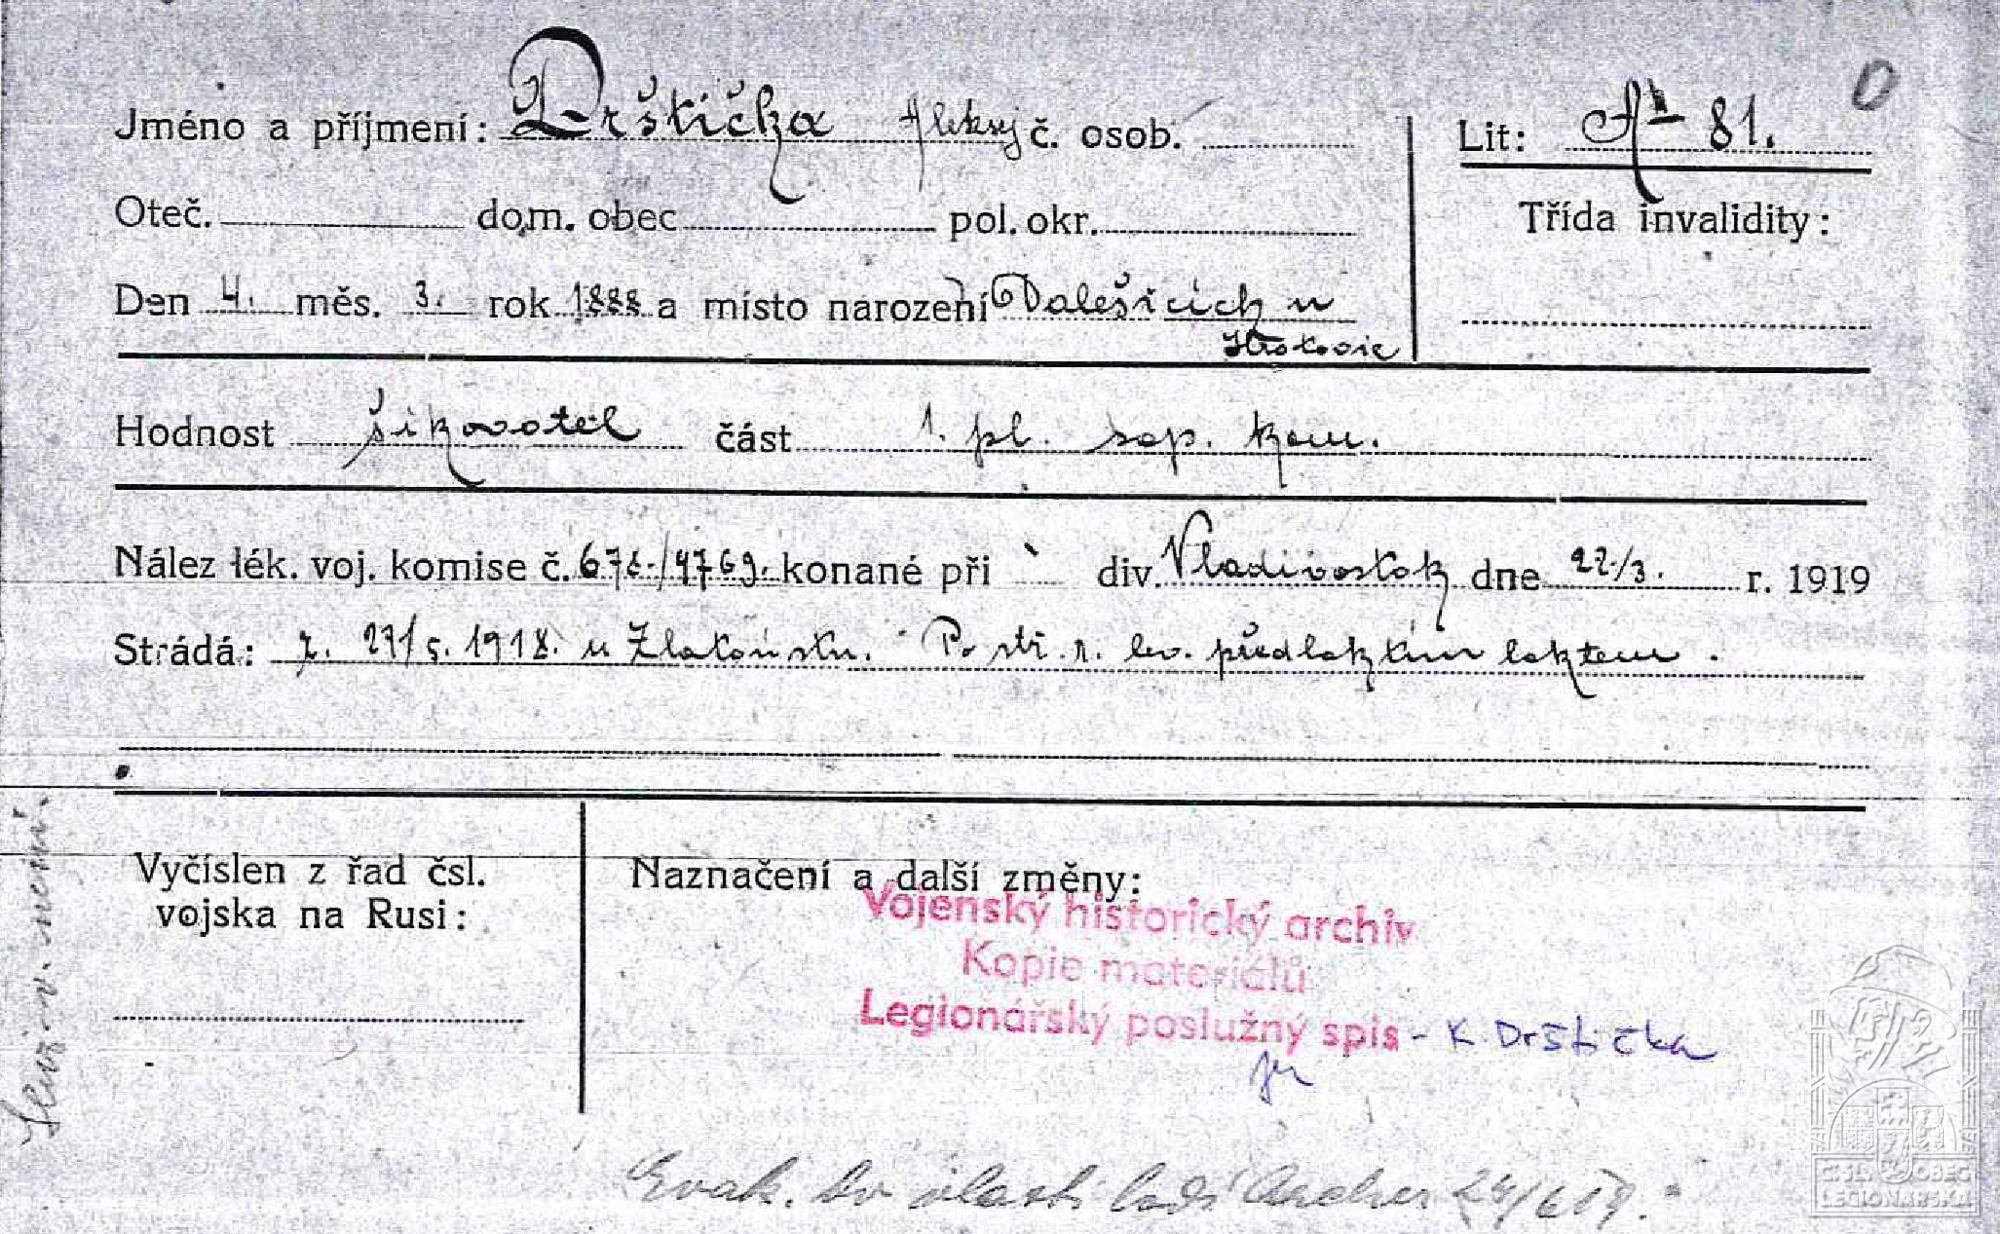 Jméno a příjmení: Drštička Aleksej č. osob. Lit: 81. 0
Oteč. dom. obec pol. okr. Třída invalidity:
Den 4. měs. 3. rok 1888 a místo narození Dalešicích u
Hrotovic
Hodnost šikovatel část 1. pl. sap. kom.
Nález lék. voj. komise č. konané při div. Vladivostok dne 22/3. r. 1919
Strádá: 27/5. 1918. u Zlatoústu. Po stř. r. lev. předloktím loktem.
Vyčíslen z řad čsl.
vojska na Rusi:
Naznačení a další změny:
Vojenský historický archiv
Kopie materiálů
Legionářský poslužný spis - K. Drštička
Evak. do vlasti lodí Archer 24/6 19.
není.
Č.SL. OBEC
LEGIONÁŘSKÁ